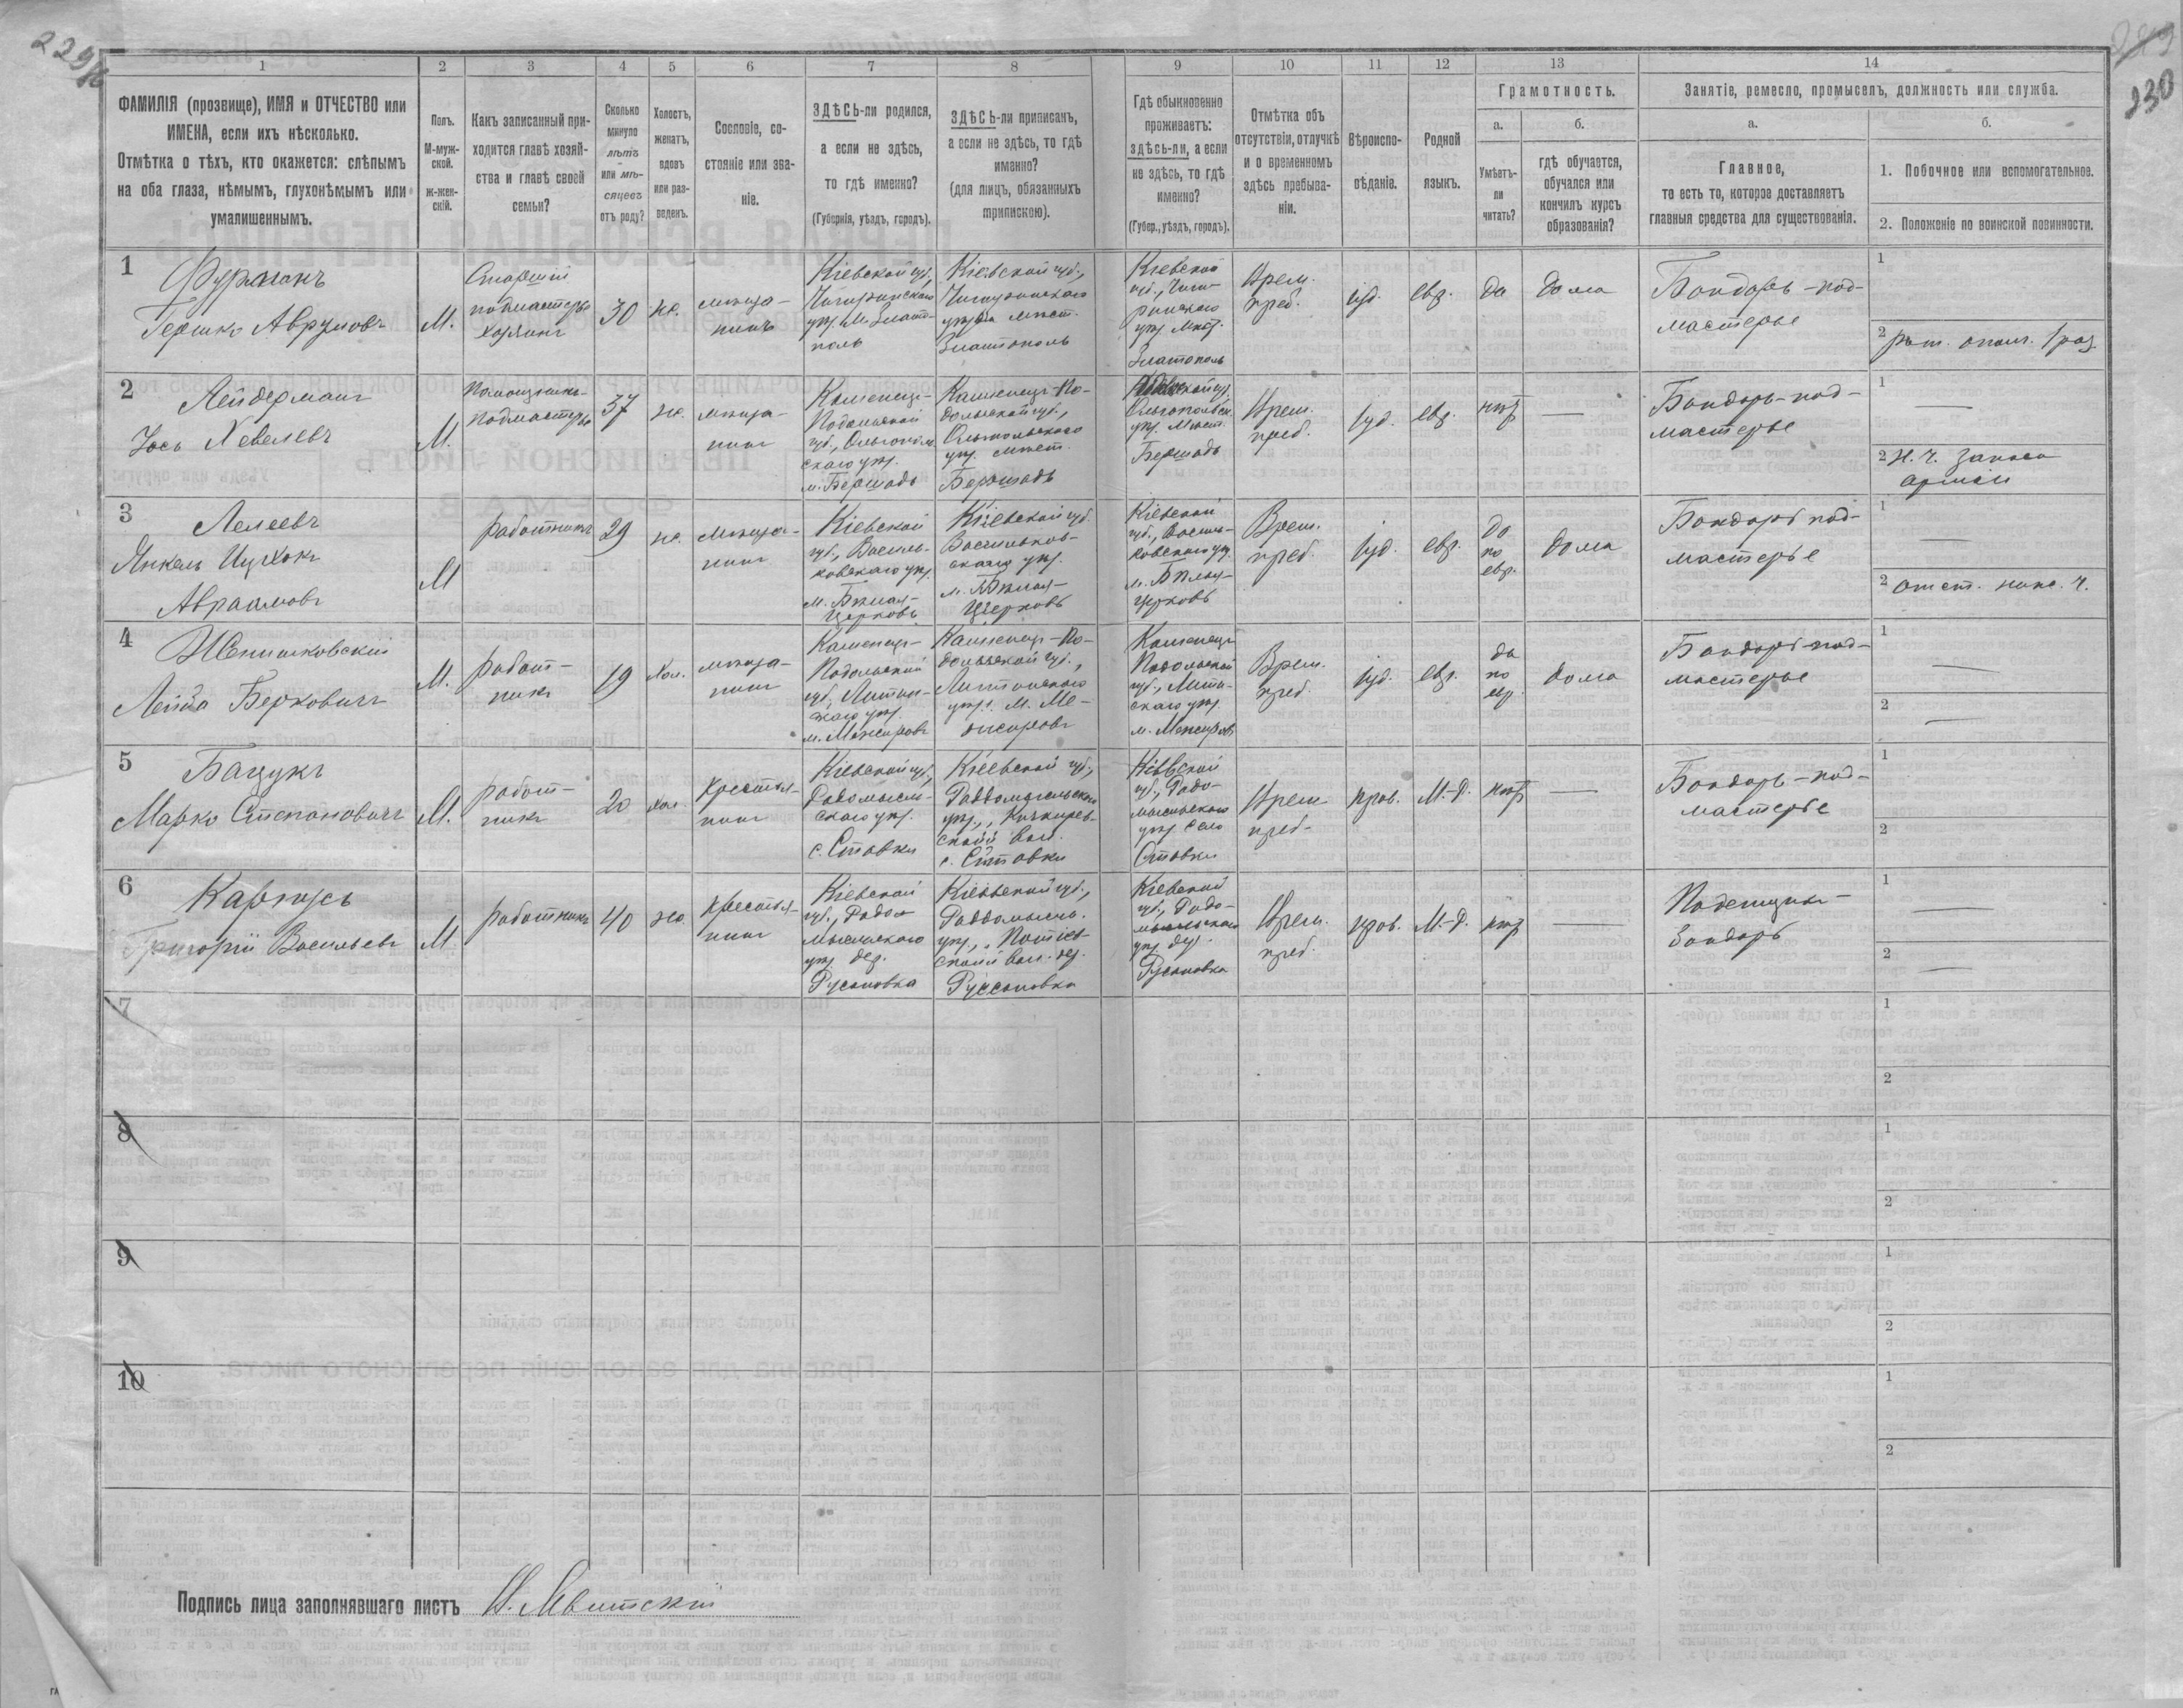 229
230
1
2
3
4
5
6
7
8
9
10
11
12
13
14
ФАМИЛІЯ (прозвище), ИМЯ и ОТЧЕСТВО или
ИМЕНА, если ихъ нѣсколько.
Отмѣтка о тѣхъ, кто окажется: слѣпымъ
на оба глаза, нѣмымъ, глухонѣмымъ или
умалишеннымъ.
Полъ.
М-муж-
ской.
ж-жен-
скій.
Какъ записанный при-
ходится главѣ хозяй-
ства и главѣ своей
семьи?
Сколько
минуло
лѣтъ
или мѣ-
сяцевъ
отъ роду?
Холостъ,
женатъ,
вдовъ
или раз-
веденъ.
Сословіе, со-
стояніе или зва-
ніе.
ЗДѢСЬ-ли родился,
а если не здѣсь,
то гдѣ именно?
(Губернія, уѣздъ, городъ).
ЗДѢСЬ-ли приписанъ,
а если не здѣсь, то гдѣ
именно?
(для лицъ, обязанныхъ
припискою).
Гдѣ обыкновенно
проживаетъ:
здѣсь-ли, а если
не здѣсь, то гдѣ
именно?
(Губер., уѣздъ, городъ).
Отмѣтка объ
отсутствіи, отлучкѣ
и о временномъ
здѣсь пребыва-
ніи.
Вѣроиспо-
вѣданіе.
Родной
языкъ.
Грамотность.
а.
Умѣетъ-
ли
читать?
б.
гдѣ обучается,
обучался или
кончилъ курсъ
образованія?
Занятіе, ремесло, промыселъ, должность или служба.
а.
Главное,
то есть то, которое доставляетъ
главныя средства для существованія.
б.
1. Побочное или вспомогательное.
2. Положеніе по воинской повинности.
1
Фурманъ
Гершко Аврумовъ
М.
Старшій
подмастерье
хозяина
30
же.
мѣща-
нинъ
Кіевской губ.,
Чигиринскаго
уѣз. М. Злато-
поль
Кіевской губ.,
Чигиринскаго
уѣзда мѣст.
Златополь
Кіевской
губ., Чиги-
ринскаго
уѣз. мѣст.
Златополь
Врем.
преб.
іуд.
евр.
да
дома
Бондарь-под-
мастерье
1
2 рат. опол. 1 раз.
2
Лейдерманъ
Іось Хевелевъ
М.
Помощникъ
подмастерья
37
же.
мѣща-
нинъ
Каменец-
Подольской
губ., Ольгополь
скаго уѣз.
м. Бершадь
Каменец-По-
дольской губ.,
Ольгопольскаго
уѣз. мѣст.
Бершадь
Ольгопольск.
уѣз. Мѣст.
Бершадь
Врем.
преб.
іуд.
евр.
нѣт
—
Бондарь-под-
мастерье
1
—
2 Н. Ч. запаса
арміи
3
Лелеевъ
Янкель Ицхокъ
Авраамовъ
М
работникъ
29
же.
мѣща-
нинъ
Кіевской
губ., Василь-
ковскаго уѣз.
м. Бѣлая-
Церковь
Кіевской губ.
Васильков-
скаго уѣз.
м. Бѣлая-
Церковь
Кіевской
губ., Василь-
ковскаго уѣз.
м. Бѣлая-
Церковь
Врем.
преб.
іуд.
евр.
да
по
евр.
дома
Бондарь под-
мастерье
1
—
2 отст. ниж. ч.
4
Лейба Берковичъ
М.
работ-
никъ
19
хол.
мѣща-
нинъ
Каменец-
Подольской
губ., Литин-
скаго уѣз.
м. Межировъ
Каменец-По-
дольской губ.,
Литинскаго
уѣз. м. Ме-
жировъ
Каменец
Подольской
губ., Лити-
скаго уѣз.
м. Межировъ
Врем.
преб.
іуд.
евр.
да
по
евр.
дома
Бондарь-под-
мастерье
1
—
2
—
5
Бацукъ
Марко Степановичъ
М.
работ-
никъ
20
хол.
крестья-
нинъ
Кіевской губ.,
Радомысль-
скаго уѣз.
с. Ставки
Кіевской губ.,
Радомысльскаго
с. Ставки
Кіевской
губ., Радо-
мысльскаго
уѣз. село
Ставки
Врем.
преб.
прав.
М.-Р.
нѣт
—
Бондарь-под-
мастерье
1
2
6
Карпусь
Григорій Васильевъ
М
работникъ
40
же.
крестья-
нинъ
Кіевской
губ., Радо-
мысльскаго
уѣз. дер.
Русановка
Кіевской губ.,
Радомысль.
уѣз., Потіев-
ской вол. дер.
Руссановка
Кіевской
губ., Радо-
мысльскаго
уѣз. дер.
Русановка
Врем.
преб.
прав.
М.-Р.
нѣт
—
Поденщикъ-
бондарь
1
—
2
—
7
1
2
8
1
2
9
1
2
10
1
2
Подпись лица заполнявшаго листъ